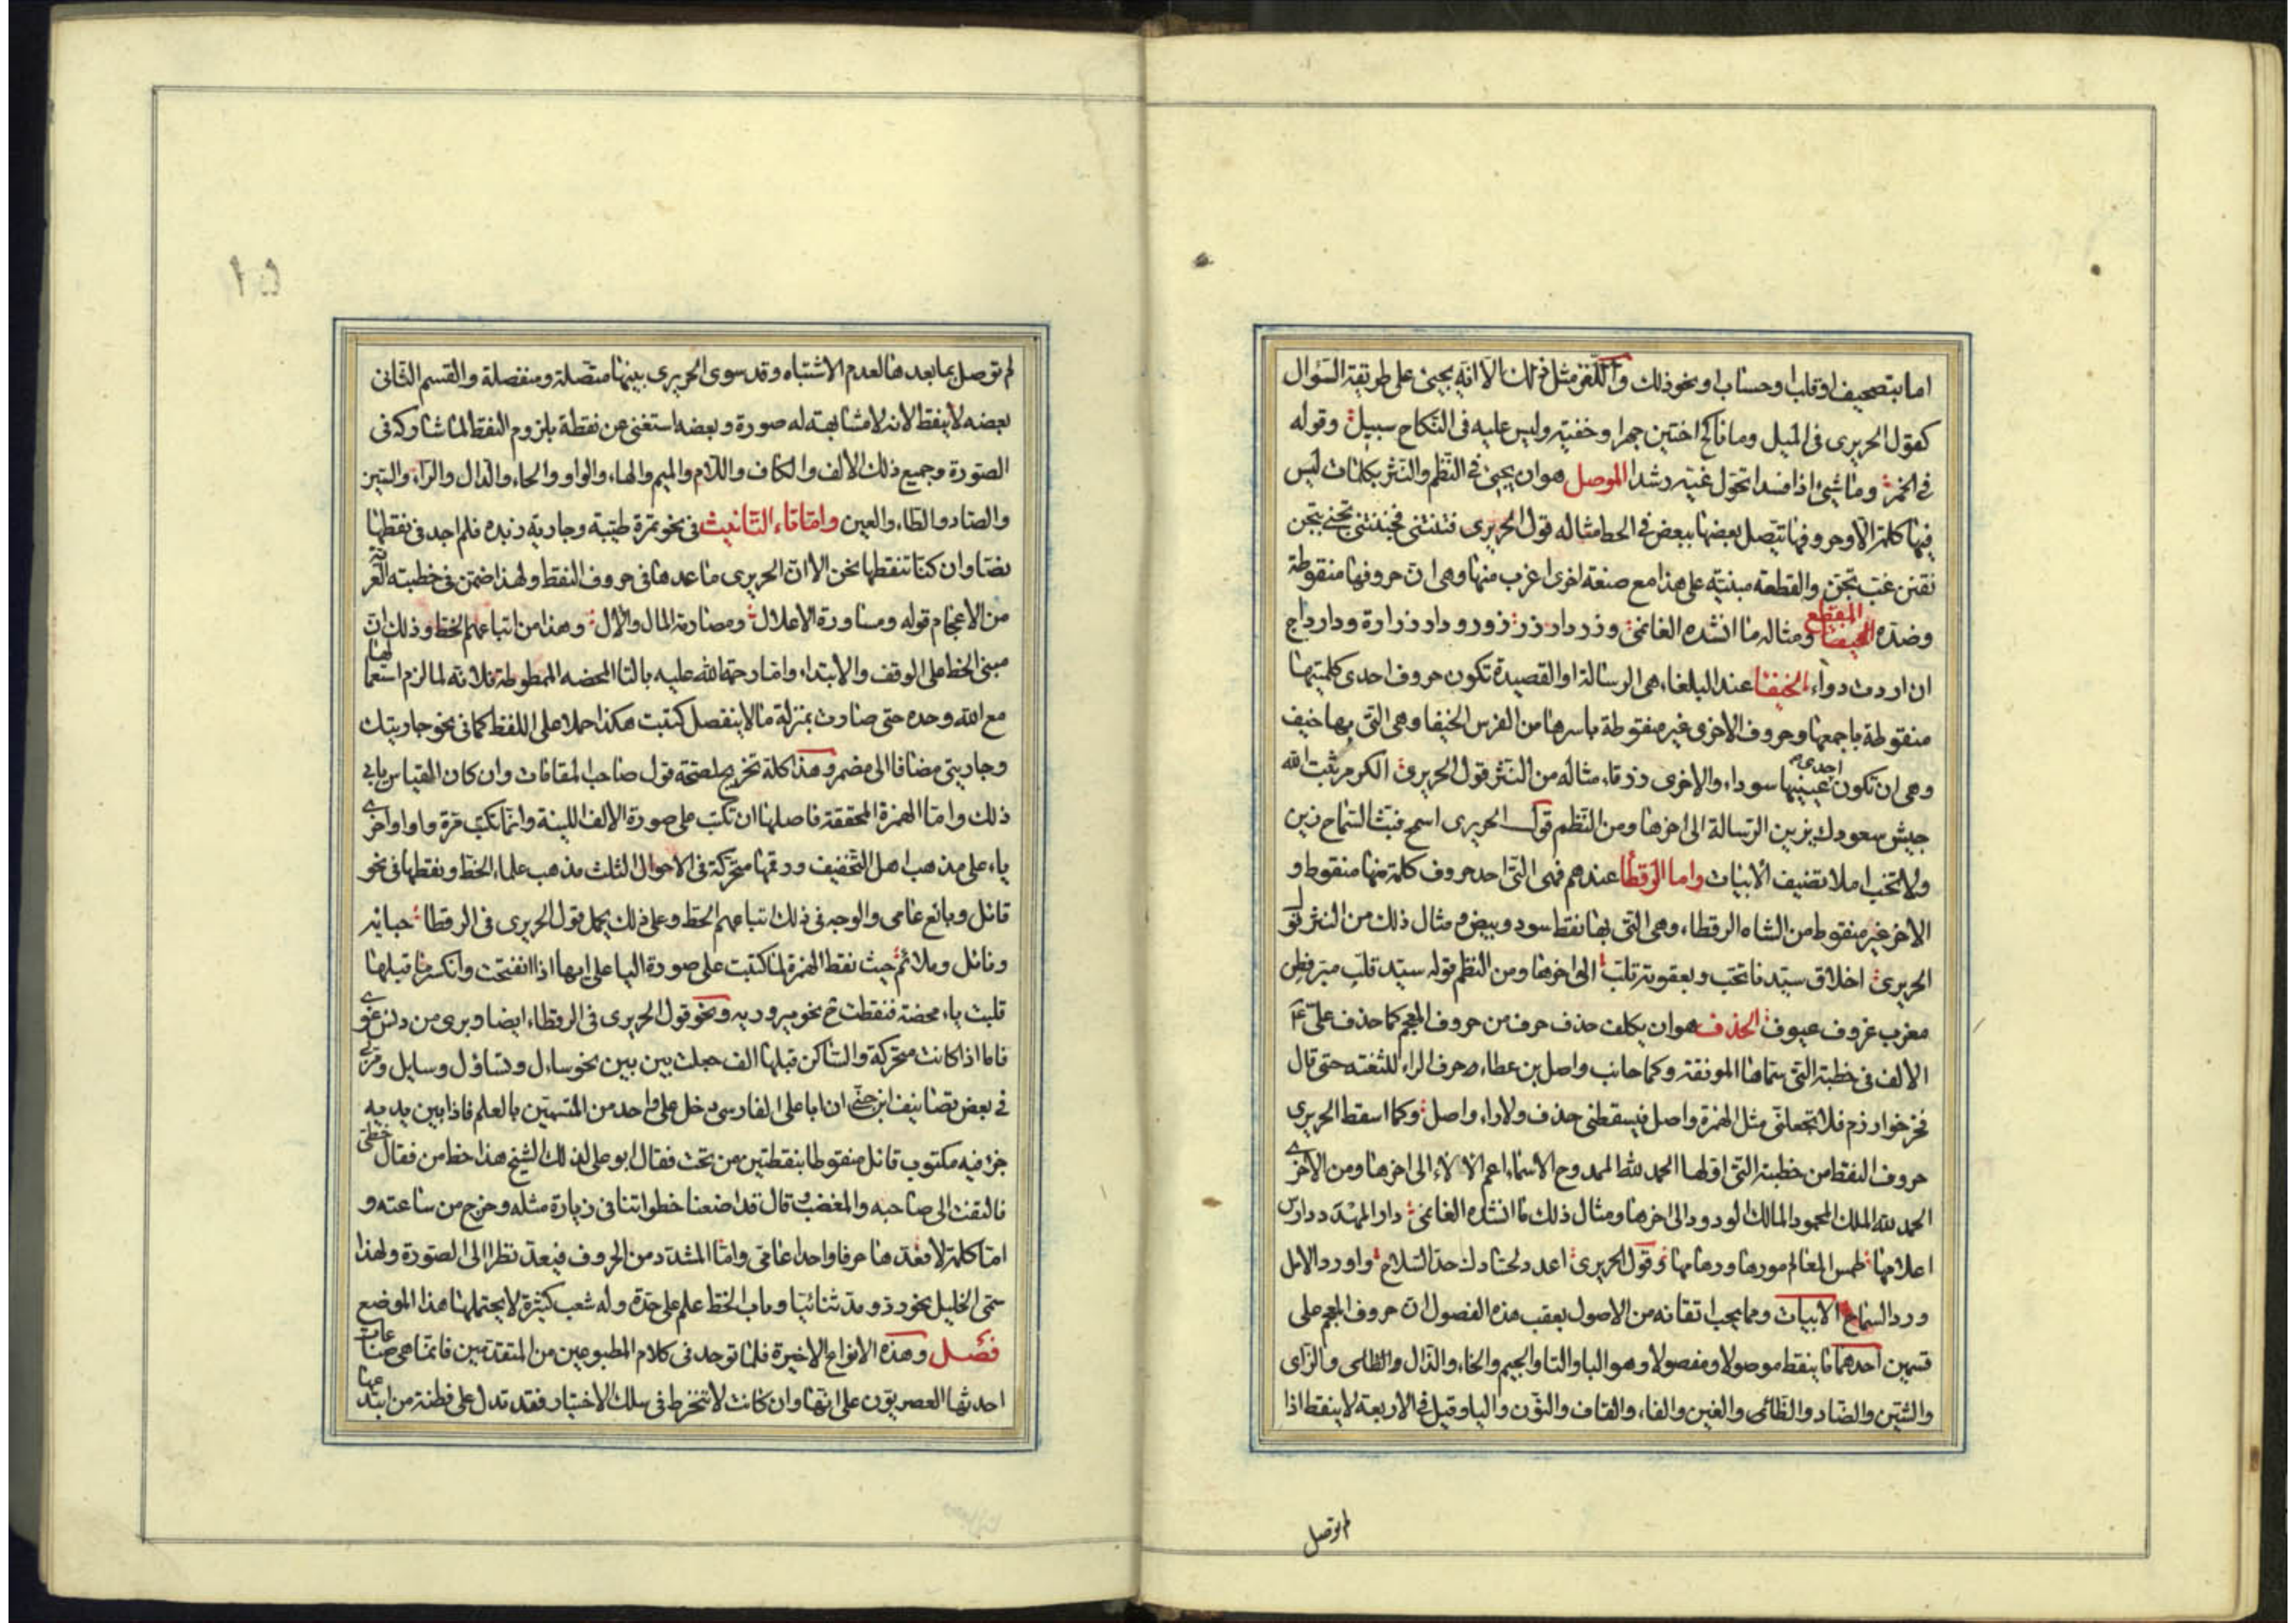 اما بتصحيف او قلب او حساب او نحو ذلك واللغز مثل ذلك الا انه يجئ على طريقة السؤال
كقول الحريرى فى الميل وما ناكح اختين جهرا وخفية وليس عليه فى النكاح سبيل وقوله
فى الخمر وما شئ اذا فسدا تحول غيه رشدا الموصل هو ان يجئ فى النظم والنثر بكلمات ليس
فيها كلمة الا وحروفها تتصل بعضها ببعض فى الخط مثاله قول الحريرى فتنتنى فجننتنى تجنى بتجن
نفتن غب تجن والقطعة مبنية على هذا مع صنعة اخرى اغرب منها وهى ان حروفها منقوطة
وضده المقطع ومثاله ما انشده الغانمى وزر دار زرزور ودار زرارة ودار رداح
ان اردت دواء الخيفا عند البلغاء هى الرسالة او القصيدة تكون حروف احدى كلمتيها
منقوطة باجمعها وحروف الاخرى غير منقوطة باسرها من الفرس الخيفا وهى التى بها خيف
وهى ان تكون احدى عينيها سوداء والاخرى زرقاء مثاله من النثر قول الحريرى الكرم ثبت الله
جيش سعودك يزين الرسالة الى اخرها ومن النظم قول الحريرى اسمح فبث السماح زين
ولا تخب املا تضيف الابيات واما الرقطا عندهم فهى التى احد حروف كلمة منها منقوط و
الاخر غير منقوط من الشاه الرقطاء وهى التى بها نقط سود وبيض ومثال ذلك من النثر قول
الحريرى اخلاق سيدنا تحب وبعقوته تلب الى اخرها ومن النظم قوله سيد قلب مبر فطن
مغرب عزوف عيوف الحذف هو ان يكلف حذف حرف من حروف المعجم كما حذف على ع
الالف فى خطبته التى سماها المونقة وكما جانب واصل بن عطاء حرف الراء للثغته حتى قال
فخر خوارزم فلا تجعلنى مثل همزة واصل فيسقطنى حذف ولا راء واصل وكما اسقط الحريرى
حروف النقط من خطبته التى اولها الحمد لله الممدوح الاسماء اعم الالاء الى اخرها ومن الاخرى
الحمد لله الملك المحمود المالك الودود الى اخرها ومثال ذلك ما انشده الغانمى دار المهدد دارس
اعلامها طمس المعالم مورها ورهامها وقول الحريرى اعدد لحسادك حد السلاح واورد الامل
ورد السماح الابيات ومما يجب اتقانه من الاصول بعقب هذه الفصول ان حروف المعجم على
قسمين احدهما ما ينقط موصولا ومفصولا وهو البا والتا والجيم والخاء والذال والظاى والزاى
والشين والضاد والظائى والغين والفاء والقاف والنون واليا وقيل فى الاربعة لا ينقط اذا
لم توصل
لم توصل بما بعدها لعدم الاشتباه وقد سوى الحريرى بينها متصلة ومنفصلة والقسم الثانى
بعضه لا ينقط لانه لا مشابهة له صورة وبعضه استغنى عن نقطة بلزوم النقط لما شاركه فى
الصورة وجميع ذلك الالف والكاف واللام والميم والهاء والواو والحاء والدال والراء والسين
والصاد والطاء والعين واما تاء التانيث فى نحو تمرة طيبة وجارية زبده فلم اجد فى نقطها
نصا وان كنا ننقطها نحن الا ان الحريرى ما عدها فى حروف النقط ولهذا ضمن فى خطبته العرية
من الاعجام قوله ومساورة الاعلال ومصادمة المال والال وهذا من اتباعهم الخط وذلك ان
مبنى الخط على الوقف والابتداء واما رحمة الله عليه بالتا المحضه الممطوطة فلانه لما لزم استعمالها
مع الله وحده حتى صارت بمنزلة ما لا ينفصل كتبت هكذا حملا على اللفظ كما فى نحو جاريتك
وجاريتى مضافا الى مضمر وهذا كله تخريج لصحة قول صاحب المقامات وان كان القياس يابى
ذلك واما الهمزة المحققة فاصلها ان تكتب على صورة الالف اللينة وانما تكتب مرة واوا واخرى
ياء على مذهب اهل التخفيف ورقمها متحركة فى الاحوال الثلث مذهب علماء الخط ونقطها فى نحو
قائل وبائع عامى والوجه فى ذلك اتباعهم الخط وعلى ذلك يحمل قول الحريرى فى الرقطا حبائه
ونائل وملائم حيث نقط الهمزة لما كتبت على صورة اليا على انها اذا انفتحت وانكسر ما قبلها
قلبت ياء محضة فنقطت ح نحو مير وريه ونحو قول الحريرى فى الرقطاء ايضا وبرى من دنس غوى
فاما اذا كانت متحركة والساكن قبلها الف جعلت بين بين نحو ساءل وتساؤل وسايل ومر بى
فى بعض تصانيف ابن جنى ان ابا على الفارسى دخل على واحد من المتسمين بالعلم فاذا بين يديه
جزء فيه مكتوب قائل منقوطا بنقطتين من تحت فقال ابو على لذلك الشيخ هذا خط من فقال خطى
فالتفت الى صاحبه والمغضب وقال قد اضعنا خطواتنا فى زيارة مثله وخرج من ساعته و
اما كلمة لا فعدها حرفا واحدا عامى واما المشدد من الحروف فيعد نظرا الى الصورة ولهذا
سمى الخليل نحو رد ومد ثنائيا وباب الخط علم على حدة وله شعب كثيرة لا يحتملها هذا الموضع
فصل وهذه الانواع الاخيرة فلما توجد فى كلام المطبوعين من المتقدمين فانما هى صناعات
احدثها العصريون على انها وان كانت لا تنخرط فى سلك الاختيار فقد تدل على فطنة من ابتدعها